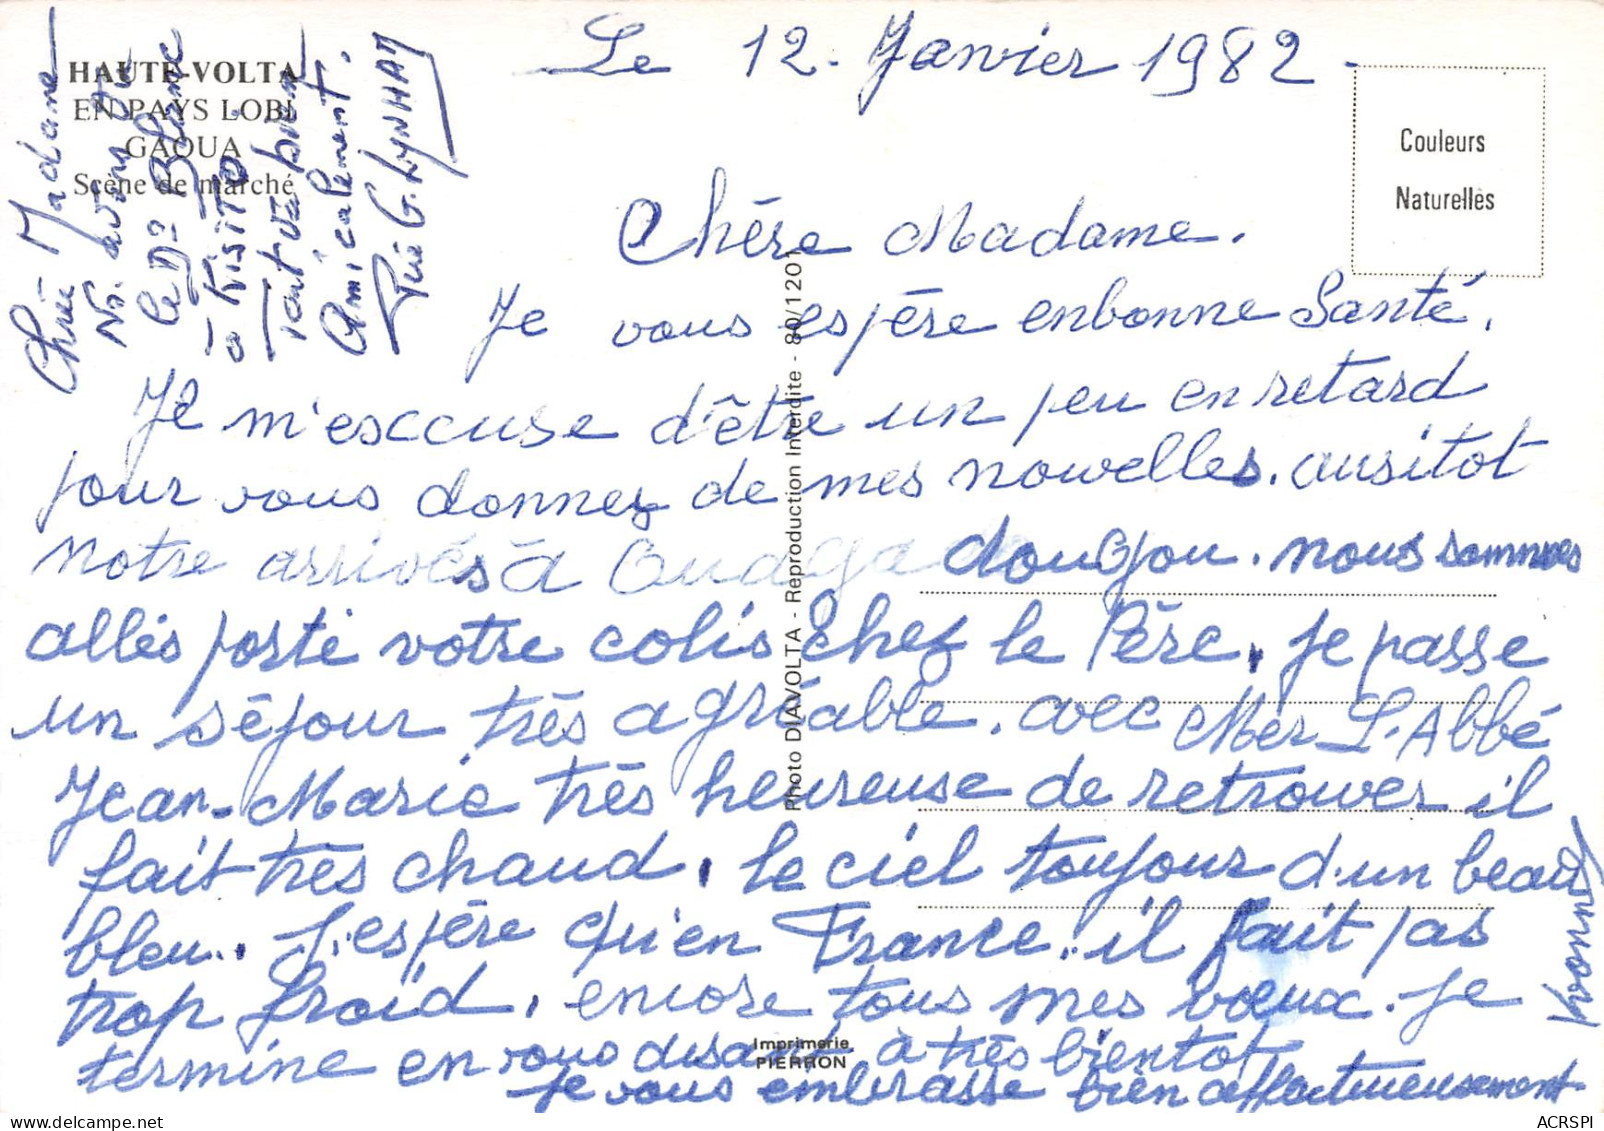 HAUTE-VOLTA
EN PAYS LOBI
GAOUA
Scène de marché
Couleurs
Naturelles
Le 12. Janvier 1982
Chère Madame.
Je vous espère enbonne Santé.
Je m'esccuse d'être un peu en retard
pour vous donnez de mes nouvelles. ausitot
notre arrivés à Ouaga dougou. nous sommes
allés porté votre colis chez le Père. je passe
un séjour très agréable. avec Mer L.Abbé
Jean-Marie très heureuse de retrouver il
fait très chaud. le ciel toujour d.un beau
bleu. J.espère qu'en France. il fait pas
trop froid. encore tous mes vœux. Je
termine en vous disant à très bientot
je vous embrasse bien affectueusement
Yvonne
Chère Madame
Ns. avons
le
Tout va bien
Amicalement.
Photo DIAVOLTA - Reproduction Interdite - 80/1201
Imprimerie
PIERRON
ACRSPI